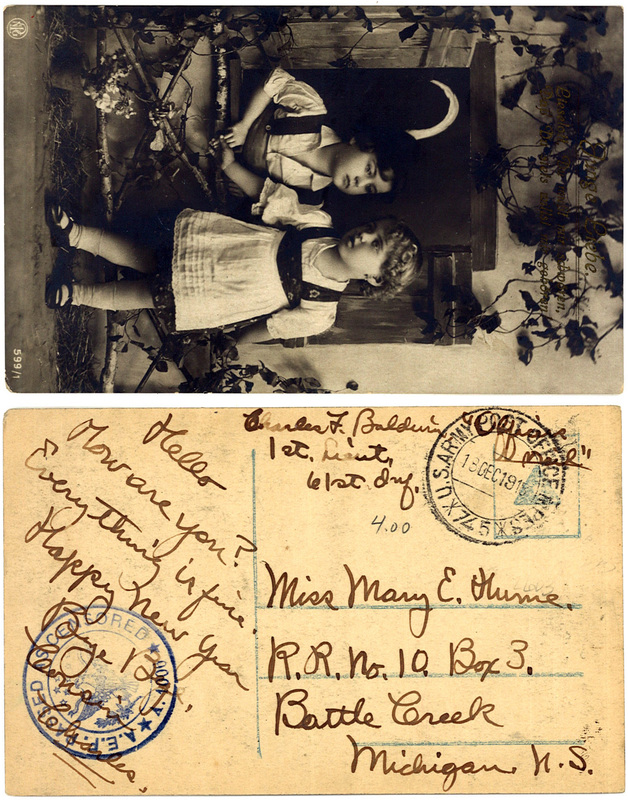 599/1
Hello
How are you?
Everything is fine.
Happy New Year
Bye Bye
Cousin
Charles.
A.E.F. PASSED AS CENSORED
Charles F. Baldwin
1st. Lieut,
61st. Inf.
"Officers Mail"
U.S. ARMY POST OFFICE M.P.E.S.
18 DEC 191
745
4.00
Miss Mary E. Hume.
R.R. No. 10. Box 3.
Battle Creek
Michigan. U.S.